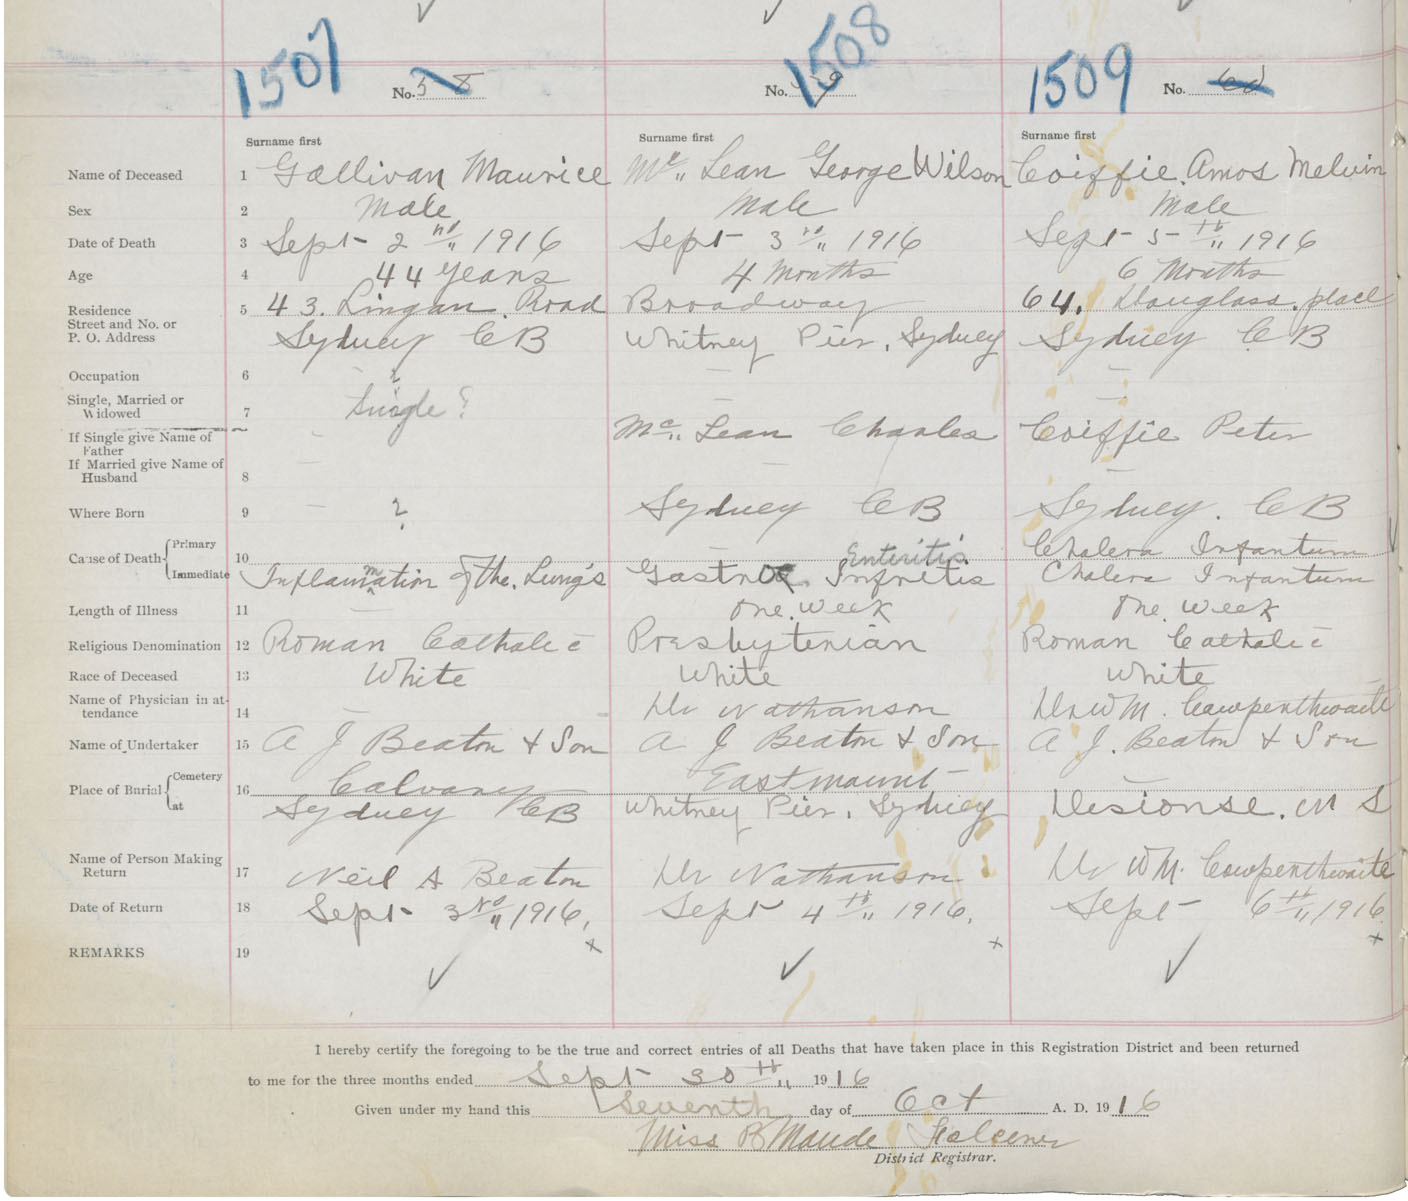 1507 1508 1509
No. 58 No. 59 No. 60
Surname first Surname first Surname first
Name of Deceased 1 Gallivan Maurice Mc Lean George Wilson Coiffie. Amos Melvin
Sex 2 Male Male Male
Date of Death 3 Sept 2nd 1916 Sept 3rd 1916 Sept 5th 1916
Age 4 44 years 4 Months 6 Months
Residence 5 43. Lingan. Road Broadway 64. Douglass. place
Street and No. or
P. O. Address Sydney CB Whitney Pier. Sydney Sydney CB
Occupation 6 - ? - -
Single, Married or
Widowed 7 Single ? - -
If Single give Name of
Father - Mc Lean Charles Coiffie Peter
If Married give Name of
Husband 8 - - -
Where Born 9 - ? Sydney CB Sydney. CB
Cause of Death Primary 10 Enteritis Cholera Infantum
Immediate Inflammation of The. Lungs Gastric Infretis Cholera Infantum
Length of Illness 11 - One. week One. week
Religious Denomination 12 Roman Catholic Presbyterian Roman Catholic
Race of Deceased 13 White White White
Name of Physician in at-
tendance 14 - Dr Nathanson Dr WM. Cowpenthwaite
Name of Undertaker 15 A J Beaton & Son A J Beaton & Son A J. Beaton & Son
Place of Burial Cemetery 16 Calvary Eastmount -
at Sydney CB Whitney Pier. Sydney
Name of Person Making
Return 17 Neil A Beaton Dr Nathanson Dr WM. Cowpenthwaite
Date of Return 18 Sept 3rd 1916. Sept 4th 1916. Sept 6th 1916.
REMARKS 19
I hereby certify the foregoing to be the true and correct entries of all Deaths that have taken place in this Registration District and been returned
to me for the three months ended Sept 30th 1916
Given under my hand this Seventh day of Oct A. D. 1916
Miss B Maude
District Registrar.